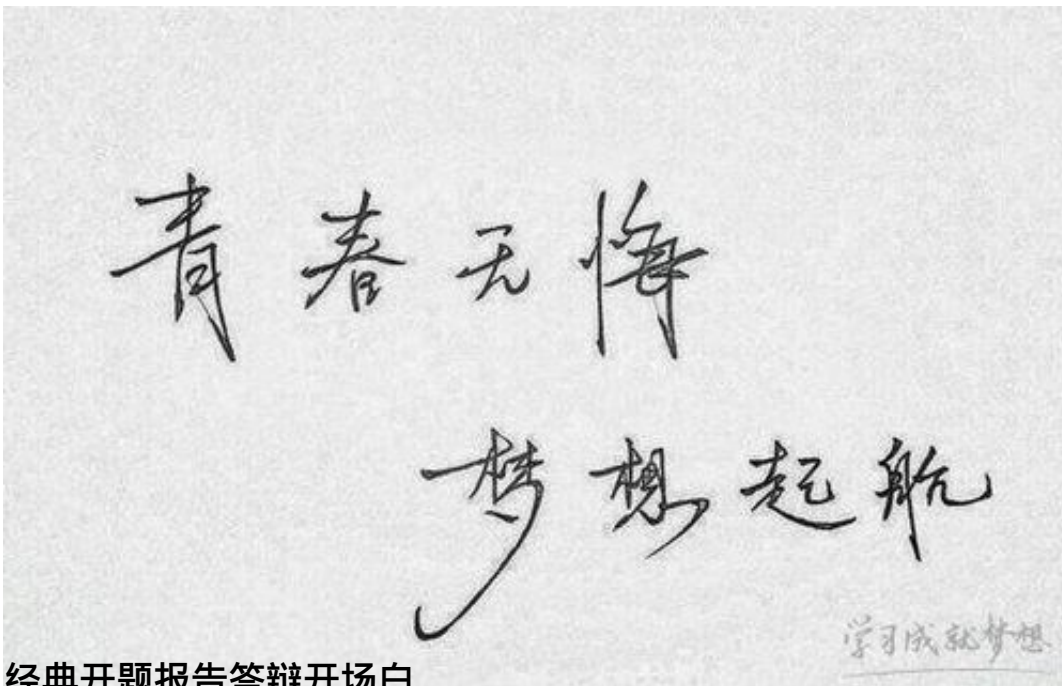 青春无悔
梦想起航
学习成就梦想
经典开题报告答辩开场白